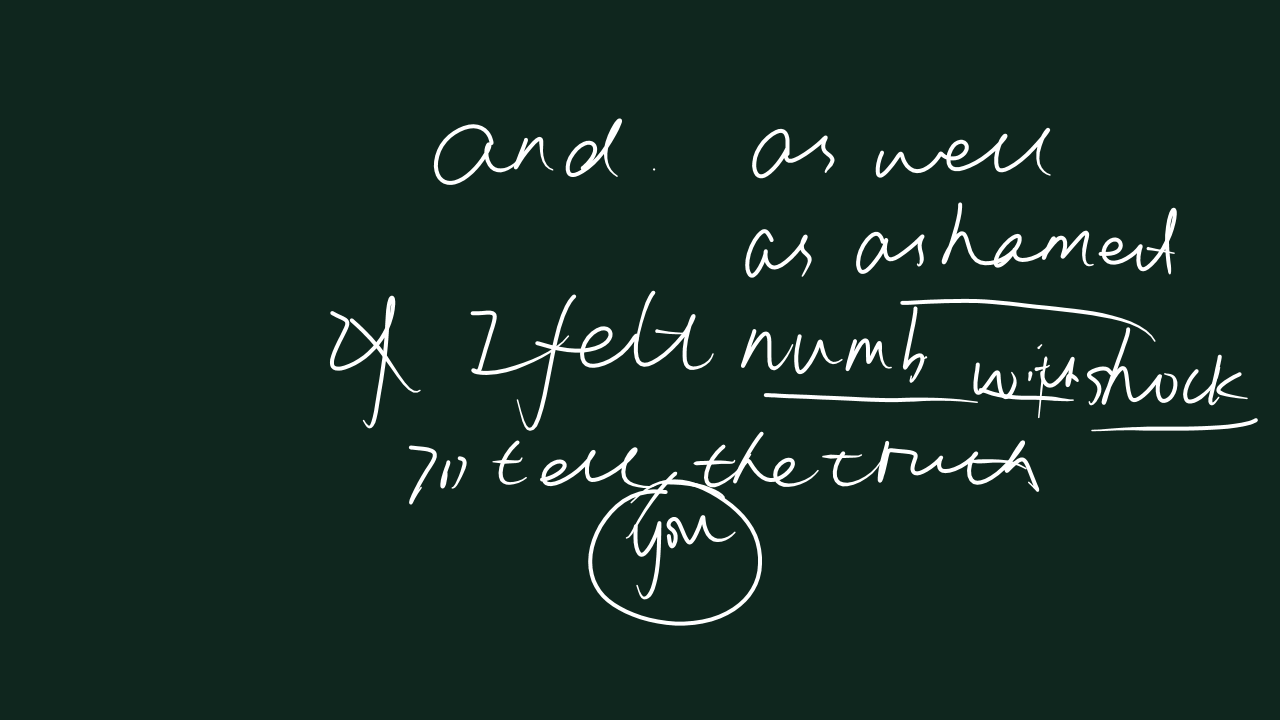 and. as well
as ashamed
I felt numb with shock
I'll tell the truth
you